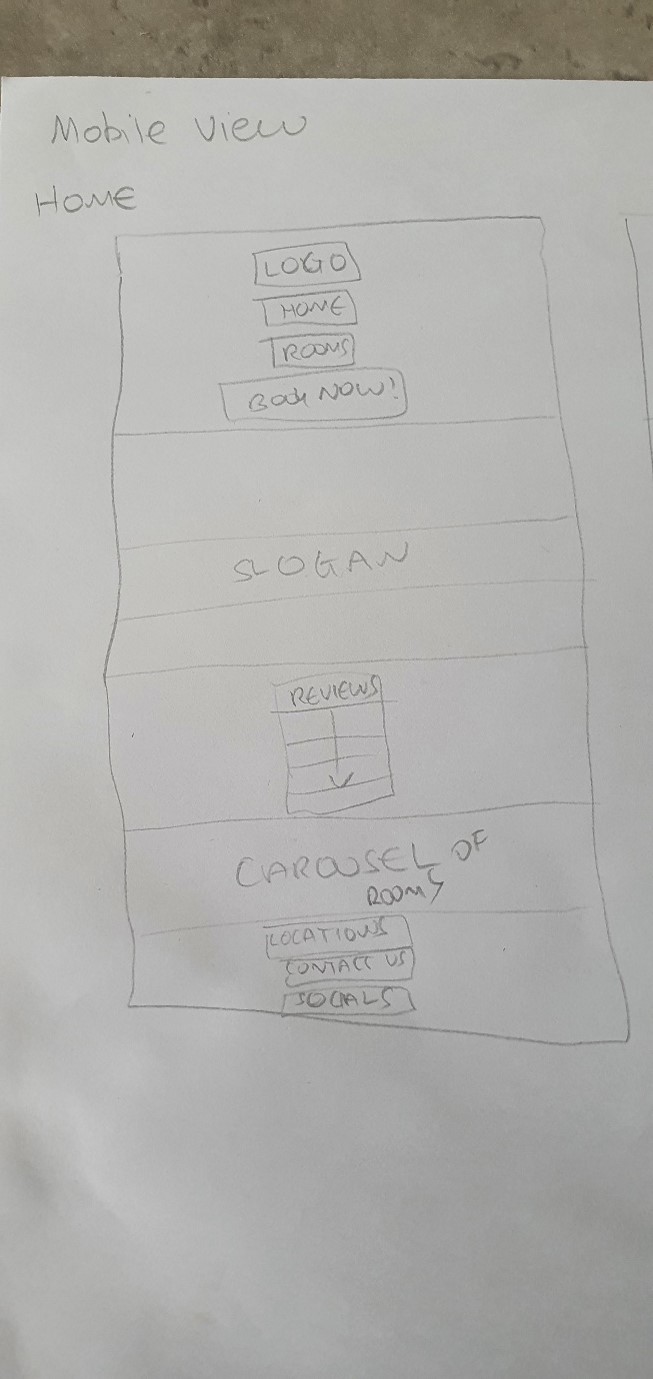 Mobile View
HOME
LOGO
HOME
ROOMS
BOOK NOW!
SLOGAN
REVIEWS
CAROUSEL OF
ROOMS
LOCATIONS
CONTACT US
SOCIALS